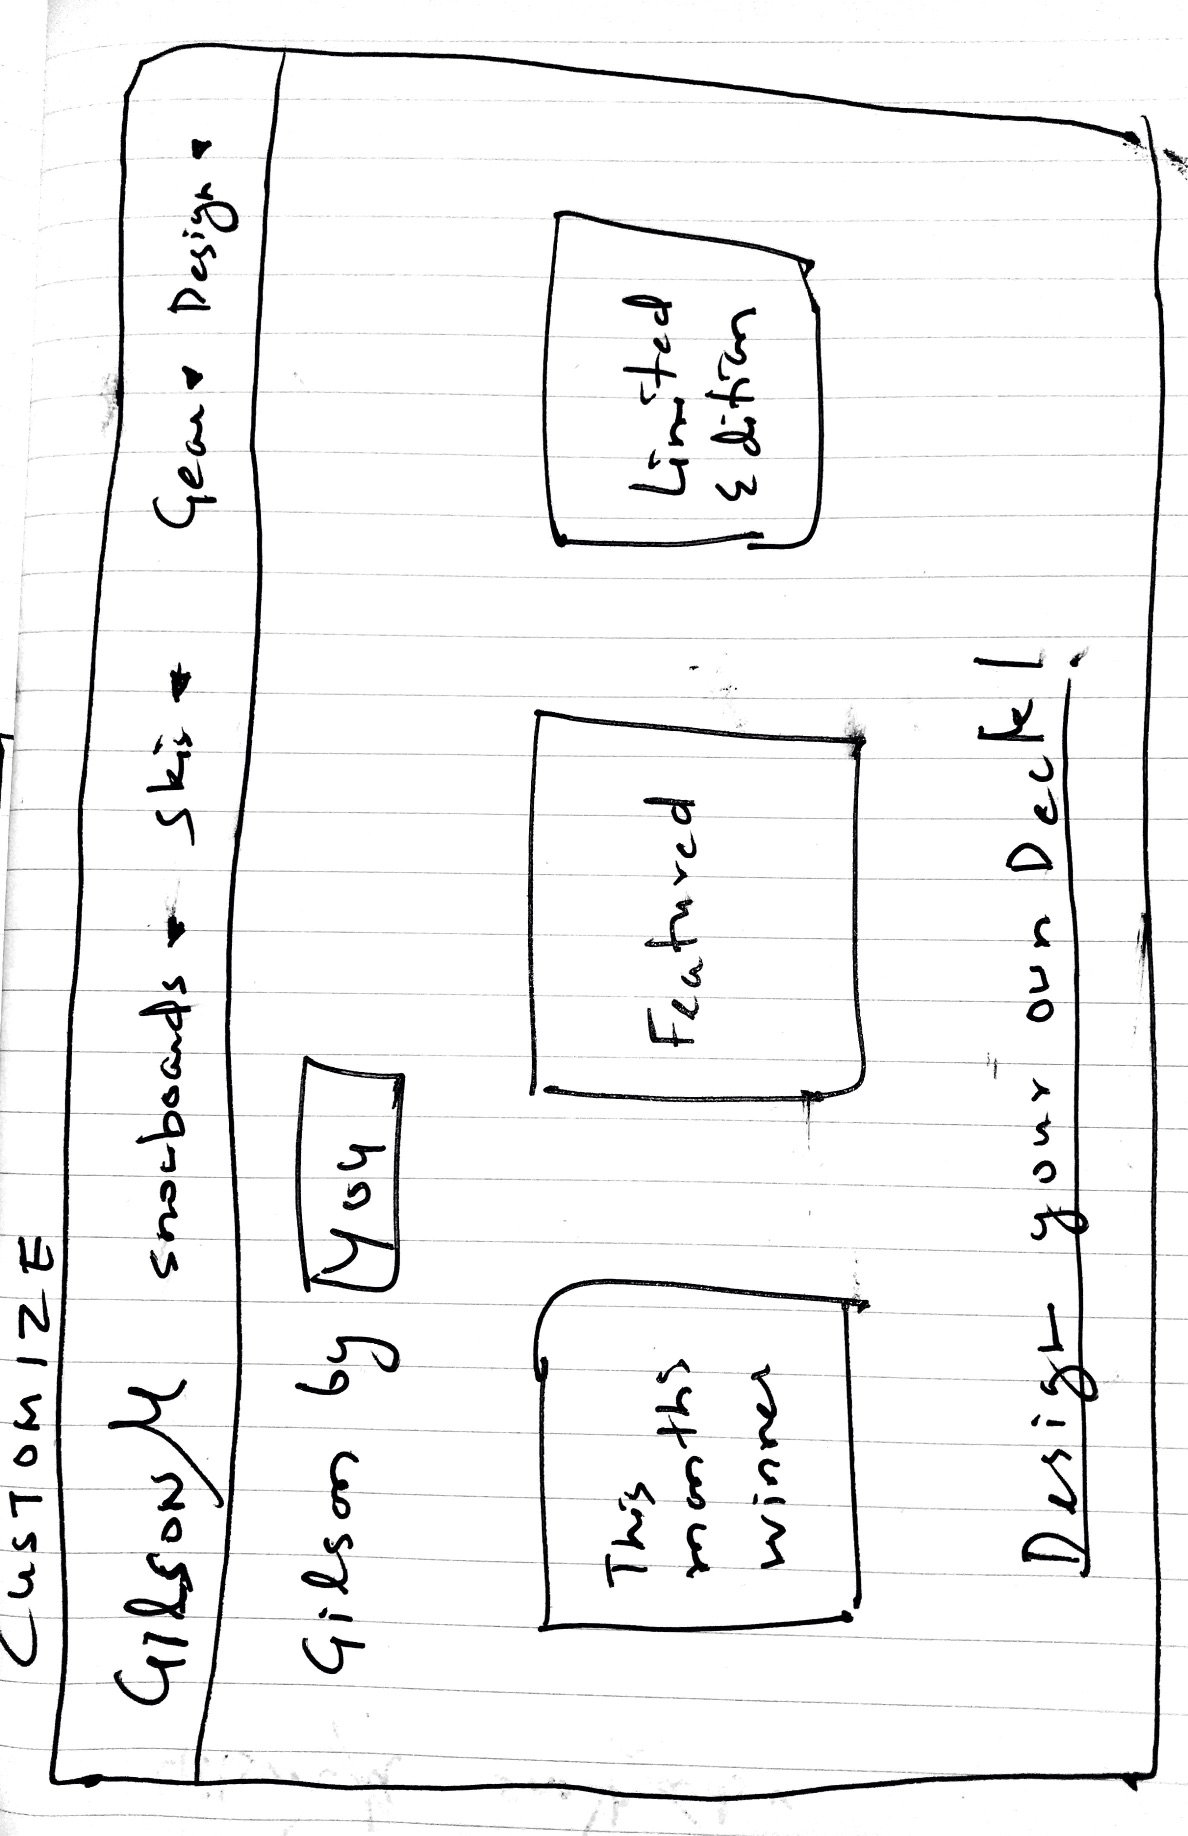 CUSTOMIZE
GILSON snowboards Skis Gear Design
Gilson by You
This
months
winner
Featured
Limited
Edition
Design your own Deck!